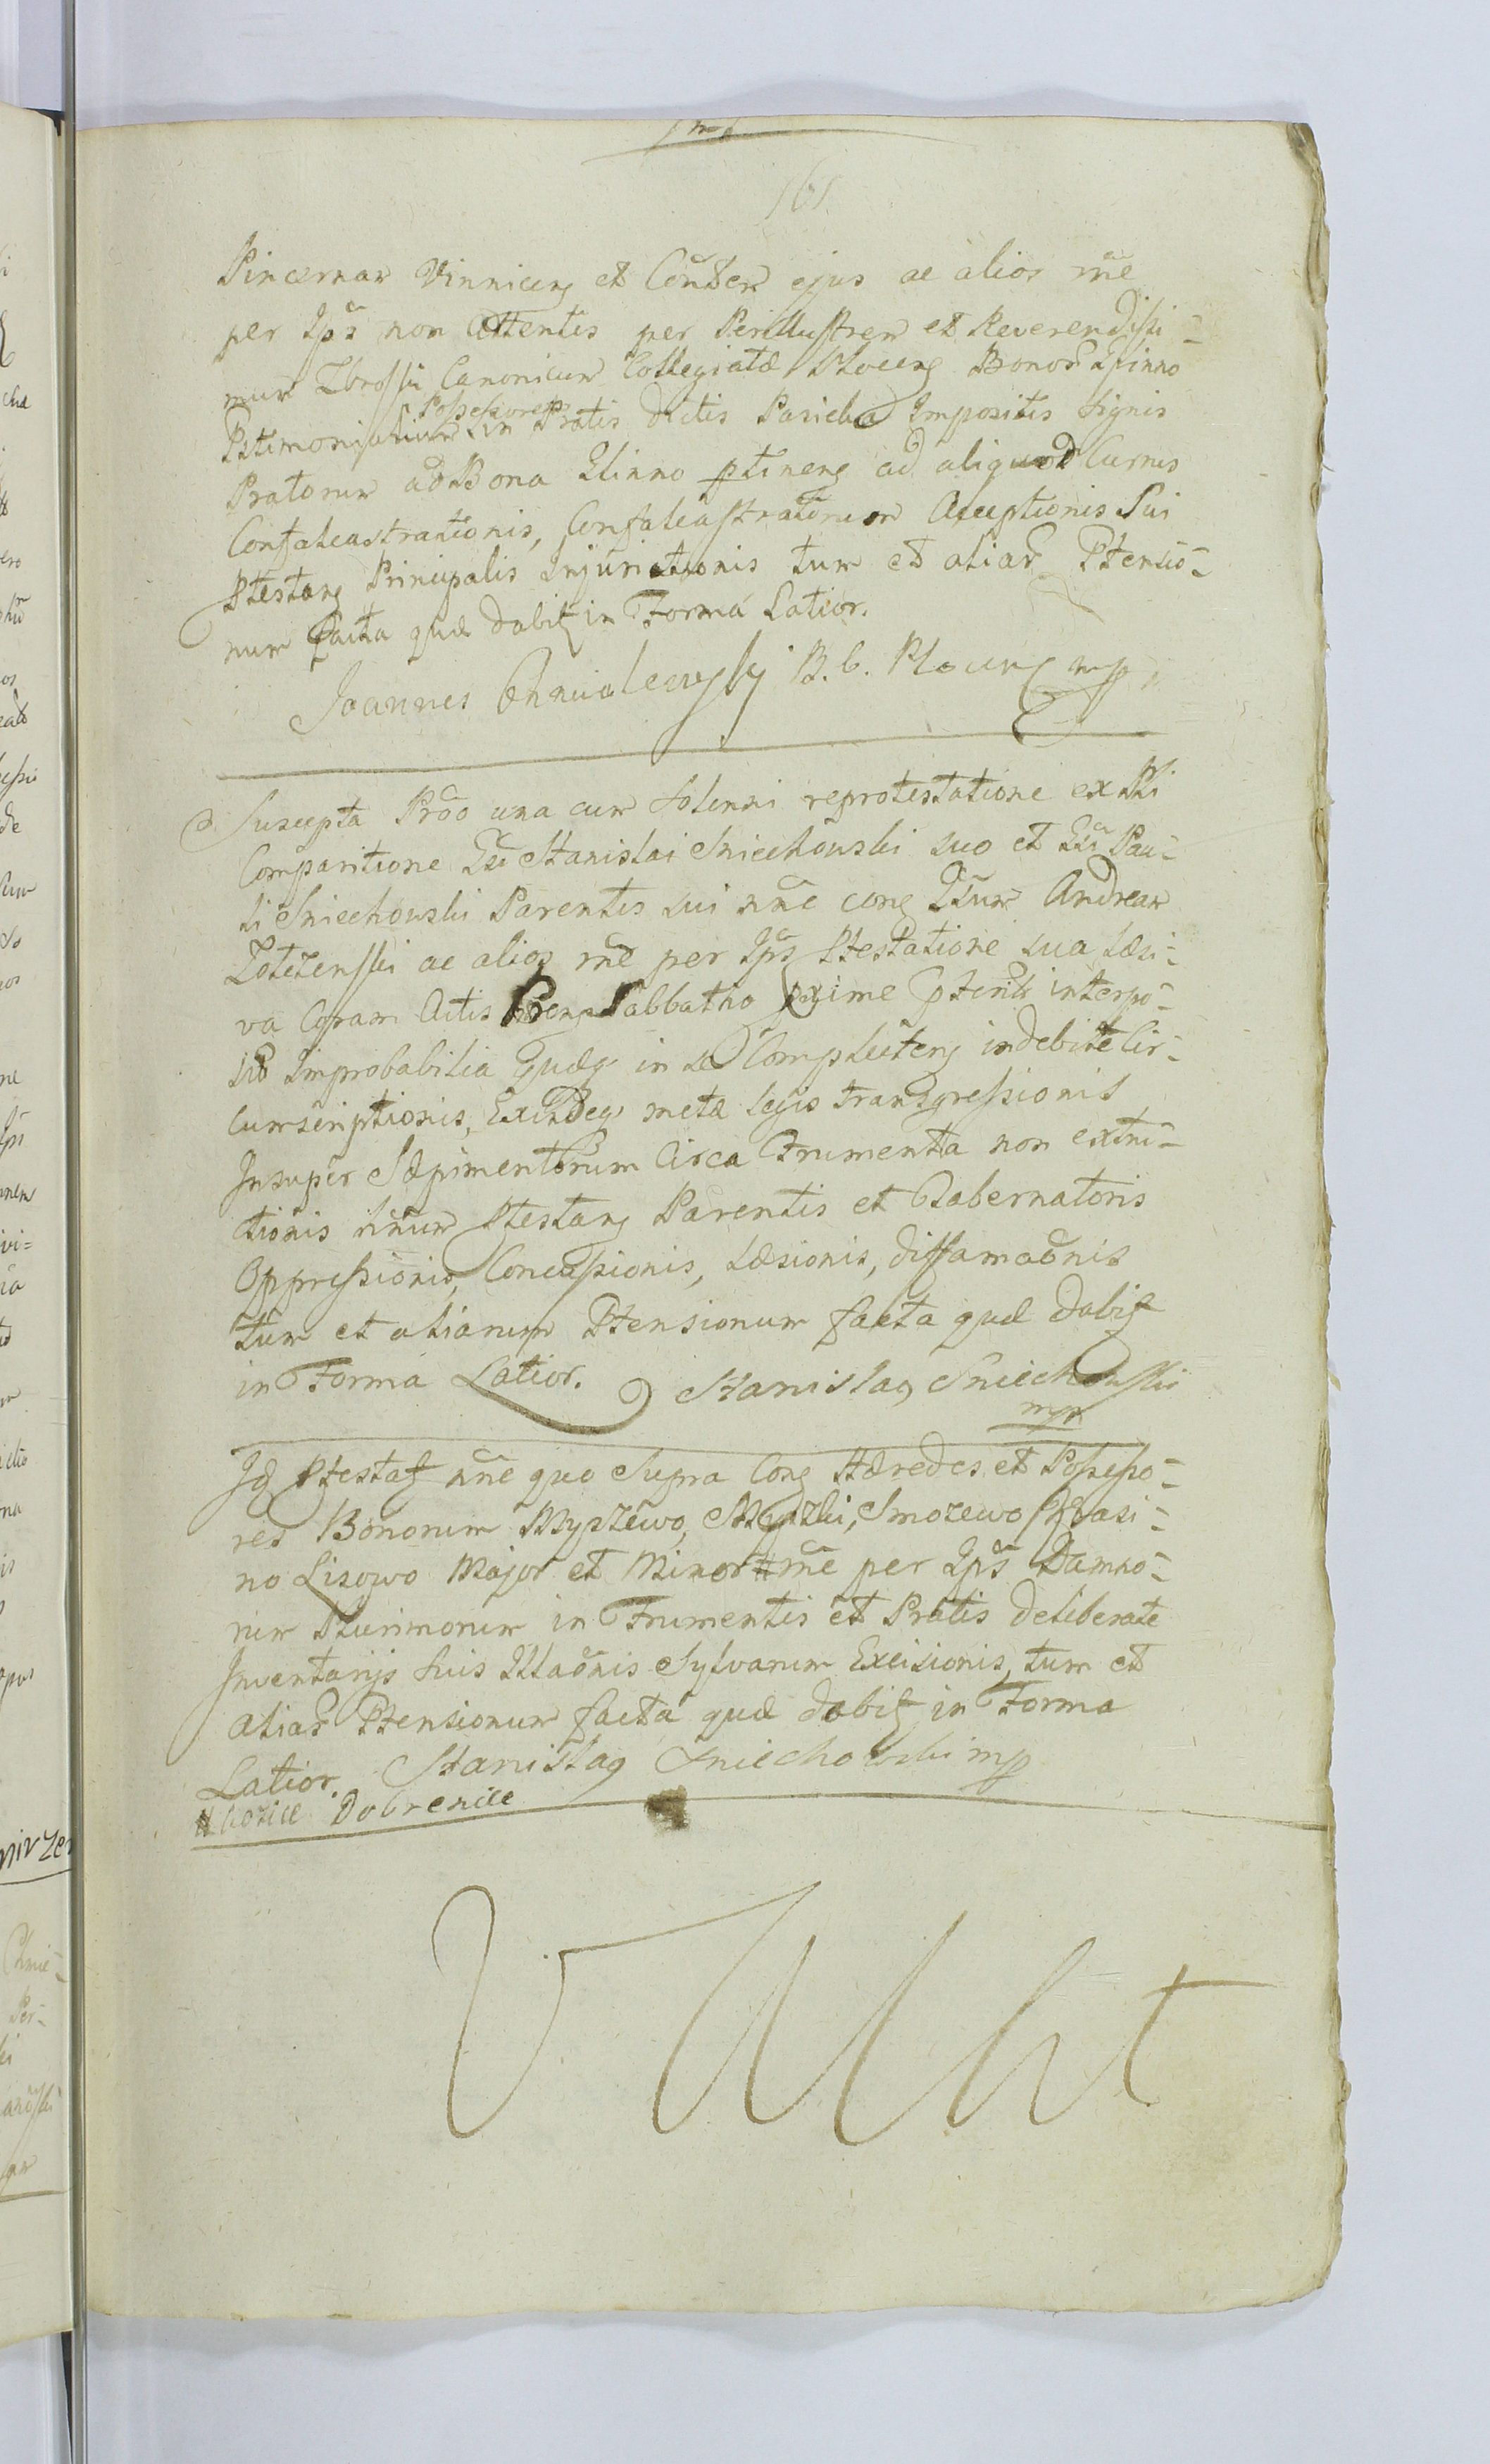 161
Pincernam Vinnicens et Conten ejus ac alios rñe
per Ips non Attentis per Perillustrem et Reverendissi-
mum Zbroski Canonicum Collegiatæ Plocens Bonor Ilinno
Possessorem
in Pratis dictis Pasieka Impositis Signis
Pratorum ad Bona Ilinno ptinens ad aliquod Currus
Confalcastrationis, Confalcastratorum Acceptionis Sui
Ptestans Principalis Injuriationis tum et aliar Ptensio-
num facta quæ dabit in Forma Latior.
Joannes Chmialewski B. C. Plocens mp
Suscepta Prõo una cum Solenni reprotestatione ex Psli
Comparitione Gsi Stanislai Sniechowski suo et Gsi Pau-
li Sniechowski Parentis sui nñe cons Gsum Andream
ac alios rñe per Ips Ptestatione sua Læsi-
va Coram Actis Præns Sabbatho pxime pterito interpo-
sio Improbabilia Quæq in se Complectens indebite Cir-
cumscriptionis, Exindeq metæ legis transgressionis
Insuper Sæpimentorum Circa Frumenta non extru-
ctionis Ptestans Parentis et Tabernatoris
Oppressionis, Concussionis, Læsionis, diffamaõnis
tum et aliarum Ptensionum facta quæ dabit
in Forma Latior. Stanislaq Sniechowski
mp
Id Ptestat nñe quo Supra Cons Hæredes et Possesso-
res Bonorum Myszewo, Smozewo Kwasi-
no Lisowo Major et Minor # rñe per Ips Damno-
rum Plurimorum in Frumentis et Pratis deliberate
Inventarijs Suis Illaõnis Sylvarum Excisionis, tum et
aliar Ptensionum facta quæ dabit in Forma
Latior. Stanislaq Sniechowski mp
# Kozice Dobrenice